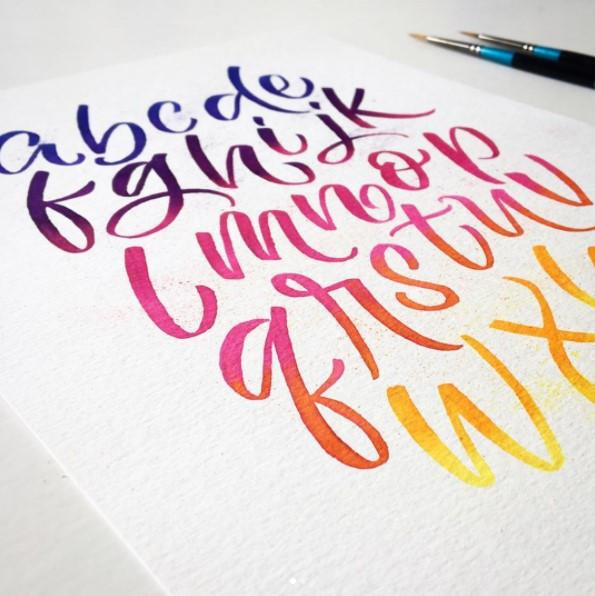 abcde
fghijk
lmnop
qrstuv
wxy